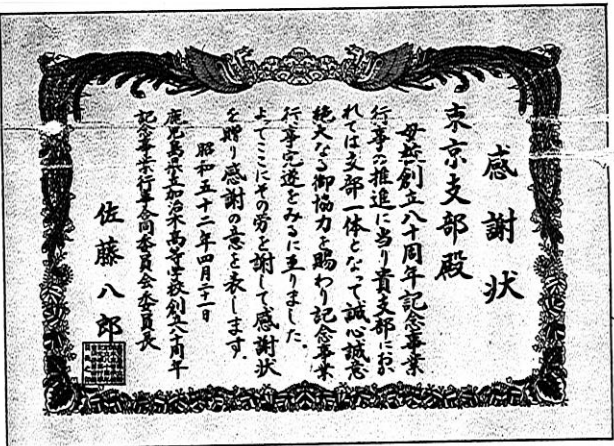 感謝状
東京支部殿
母校創立八十周年記念事業
行事の推進に当り貴支部にお
れては支部一体となって誠心誠意
絶大なる御協力を賜わり記念事業
行事完遂をみるに至りました。
よってここにその労を謝して感謝状
を贈り感謝の意を表します。
昭和五十二年四月二十一日
鹿児島県立加治木高等学校創立八十周年
記念事業行事合同委員会委員長
佐藤八郎